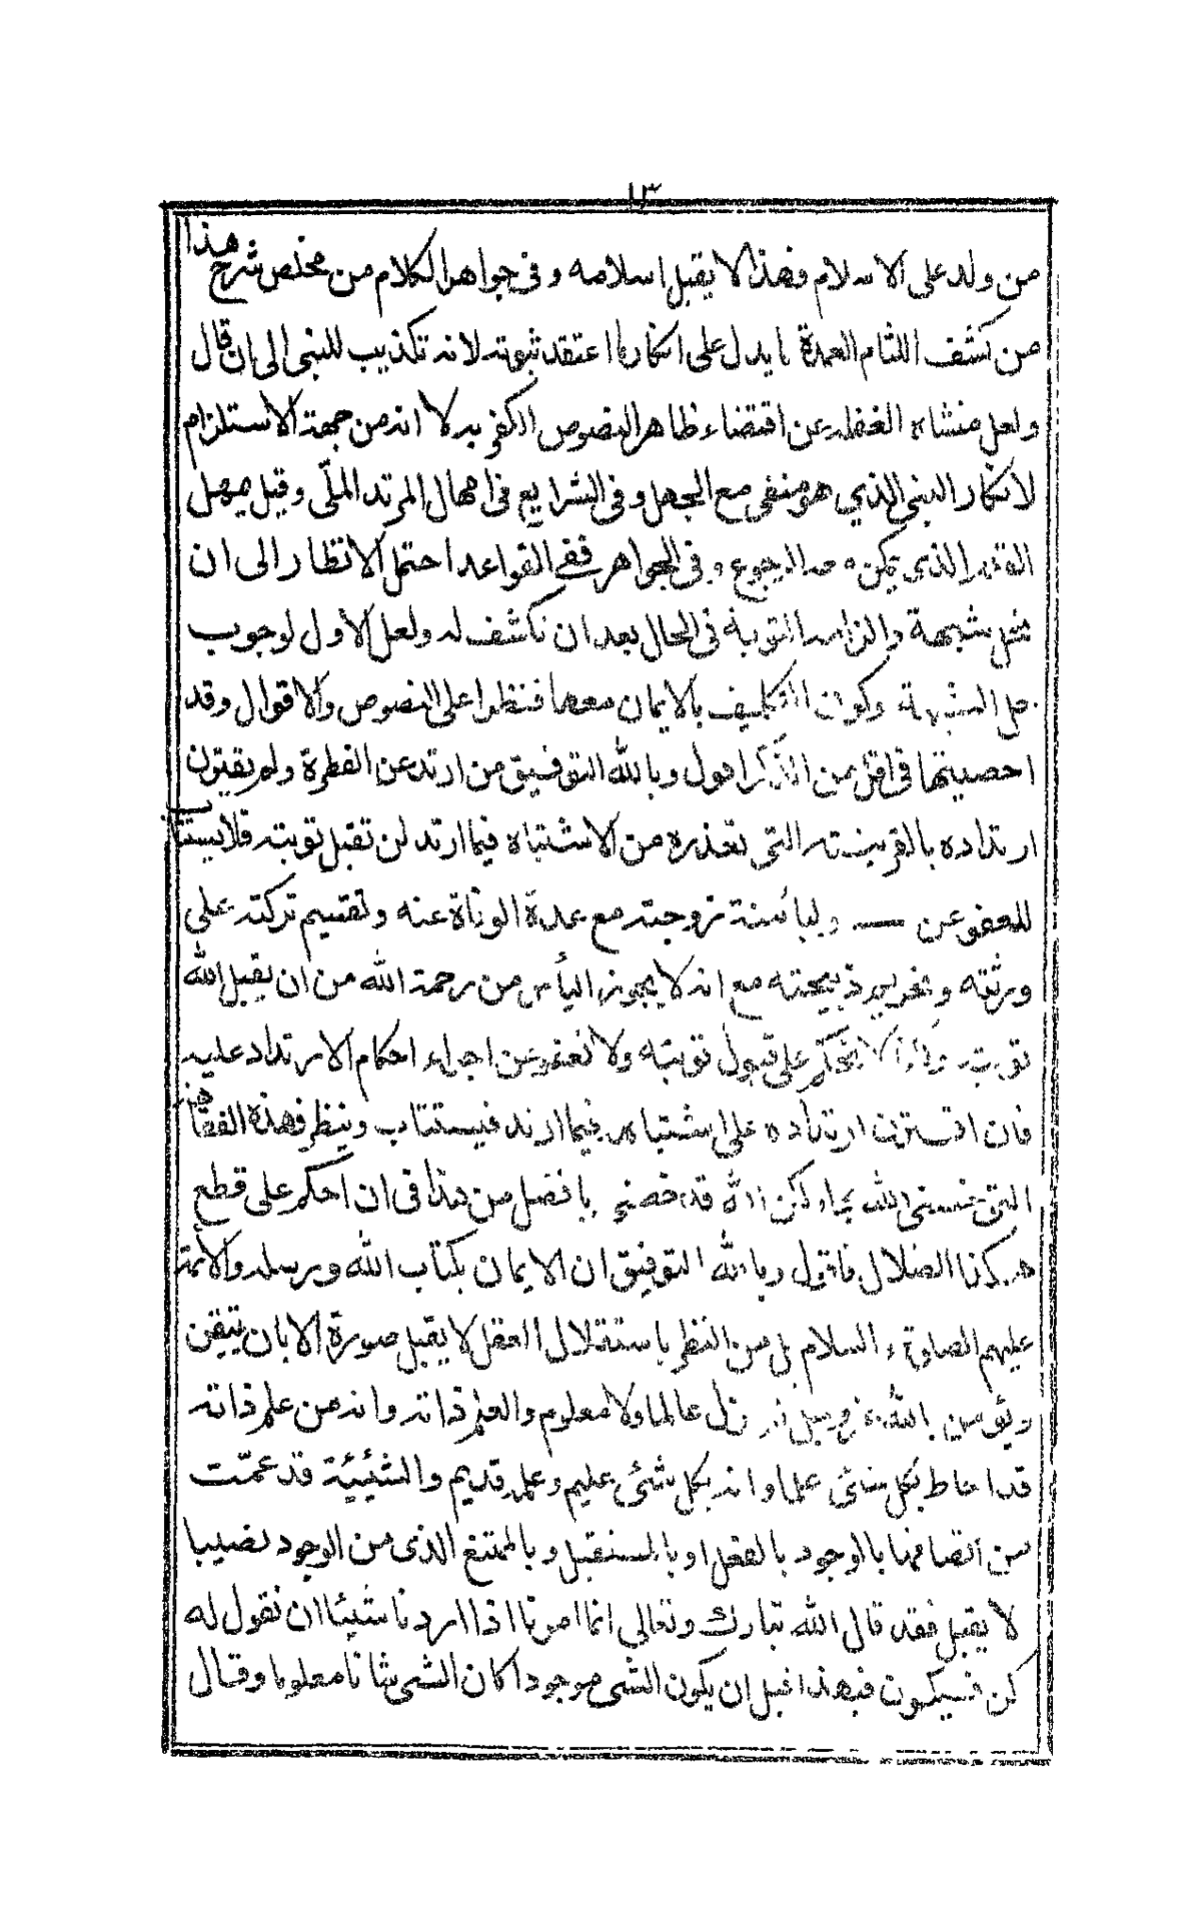 ١٣
من ولد على الاسلام فهذا لا يقبل اسلامه وفى جواهر الكلام من مخلص شرح هذا
من كشف اللثام العمدة ما يدل على انكار ما اعتقد ثبوته لانه تكذيب للنبى الى ان قال
ولعل منشاه الغفلة عن اقتضاء ظاهر النصوص الكفر به لا انه من جهة الاستلزام
لانكار النبى الذي هو منفى مع الجهل وفى الشرايع فى امهال المرتد الملّى وقيل يمهل
القدر الذى يمكن معه الرجوع وفى الجواهر ففى القواعد احتمل الانظار الى ان
تحل شبهة والزامه التوبة فى الحال بعد ان نكشف له ولعل الاول لوجوب
حل الشبهة وكون التكليف بالايمان معها فنظرا على النصوص والاقوال وقد
احصيتها فى اقل من الذكر اقول وبالله التوفيق من ارتد عن الفطرة ولم يقترن
ارتداده بالقرينة التى تعذره من الاشتباه فيما ارتد لن تقبل توبته فلا يستتاب
للعفو عن — ولبائنة زوجته مع عدة الوفاة عنه وتقسيم تركته على
ورثته وتحريم ذبيحته مع انه لا يجوز اليأس من رحمة الله من ان يقبل الله
توبته لا نحكم على قبول توبته ولا نعفو عن اجراء احكام الارتداد عليه
فان اقترن ارتداده على اشتباهه فيما ارتد فيستتاب وينظر فهذه الفقاهة
التى الله قد خصنى بافضل من هذا فى ان احكم على قطع
هكذا الضلال فاقول وبالله التوفيق ان الايمان بكتاب الله ورسله والأئمة
عليهم الصلوة والسلام بل من النظر باستقلال العقل لا يقبل صورة الا بان يتيقن
ويؤمن بالله عز وجل يزل عالما ولا معلوم والعلم ذاته وانه من علم ذاته
قد احاط بكل شئ علما وانه بكل شئى عليم وعلمه قديم والشيئية قد عمّت
من اتصافها بالوجود بالفعل او بالمستقبل وبالممتنع الذى من الوجود نصيبا
لا يقبل فقد قال الله تبارك وتعالى انما امرنا اذا اردنا شيئا ان نقول له
كن فيكون فبهذا قبل ان يكون الشى موجودا كان الشى شانا معلوما وقال